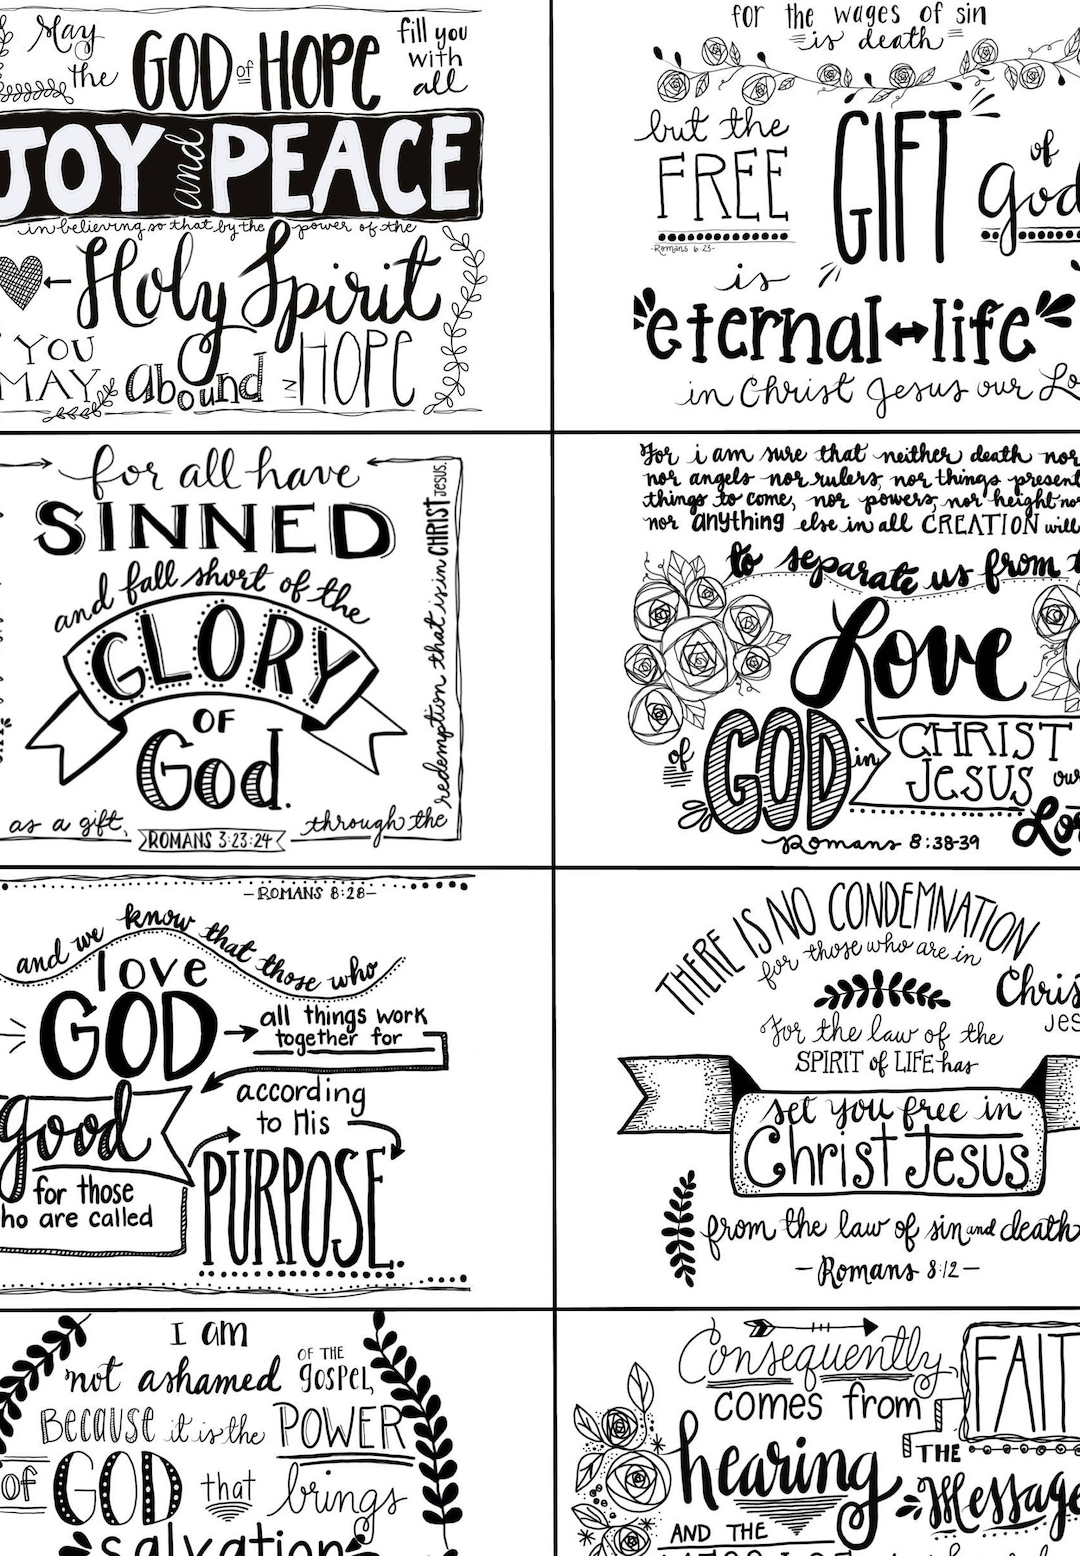 May
the
GOD of HOPE
fill you
with
all
JOY and PEACE
in believing so that by the power of the
Holy Spirit
YOU
MAY
abound
IN
HOPE
for the wages of sin
is death
but the
FREE
-Romans 6:23-
GIFT
of
God
is
eternal life
in Christ Jesus our Lo
for all have
SINNED
and fall short of the
GLORY
OF
God.
as a gift,
ROMANS 3:23-24
through the
redemption that is in CHRIST Jesus.
For i am sure that neither death nor
nor angels nor rulers, nor things present
things to come, nor powers, nor height no
nor anything else in all CREATION will
to separate us from t
Love
of
GOD
in
CHRIST
JESUS
our
Lo
Romans 8:38-39
-ROMANS 8:28-
and we know that those who
love
GOD
all things work
together for
good
according
to His
for those
ho are called
PURPOSE.
THERE IS NO CONDEMNATION
for those who are in
Chris
Jes
For the law of the
SPIRIT of LIFE has
set you free in
Christ Jesus
from the law of sin and death
-Romans 8:12-
I am
not ashamed
OF THE
gospel,
Because it is the POWER
of GOD that brings
salvation
Consequently
FAIT
comes from
hearing
THE
Message
AND THE